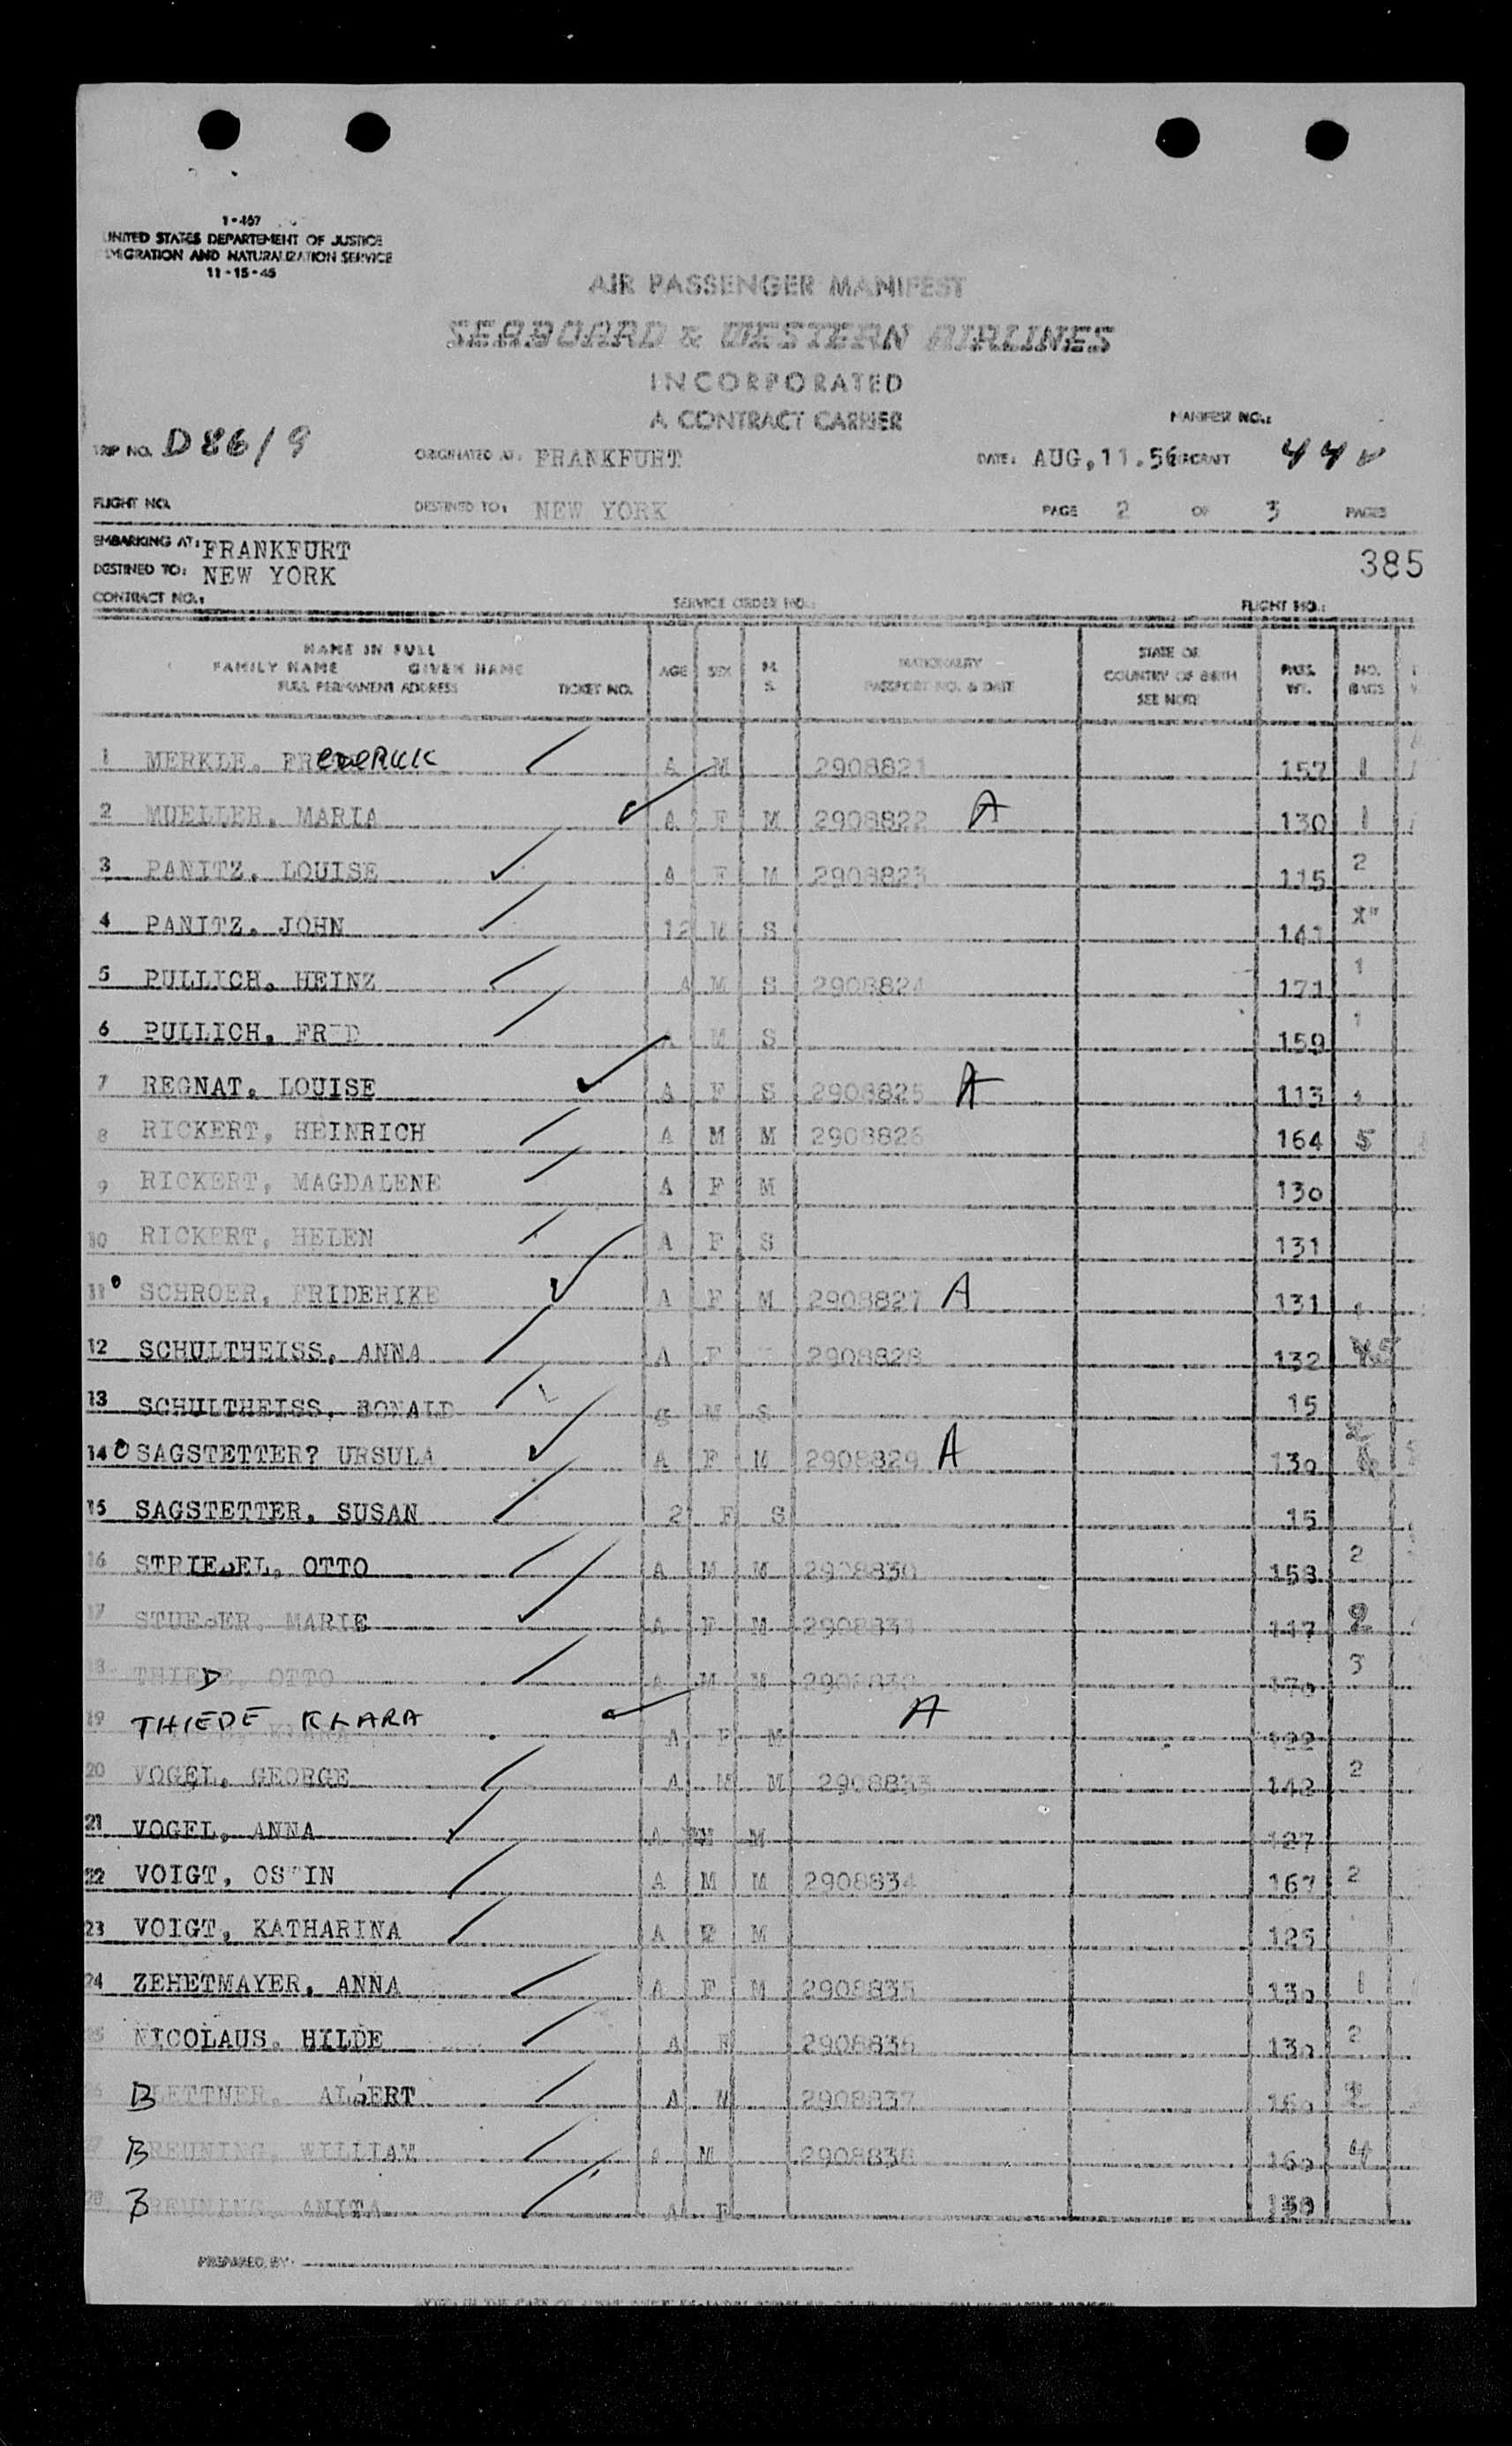 1-467
UNITED STATES DEPARTEMENT OF JUSTICE
IMIGRATION AND NATURALIZATION SERVICE
11-15-45
AIR PASSENGER MANIFEST
SEABOARD & WESTERN AIRLINES
INCORPORATED
A CONTRACT CARRIER
MANIFEST NO.:
TRIP NO. D86/9 ORIGINATED AT: FRANKFURT DATE: AUG,11.56 AIRCRAFT 44
FLIGHT NO. DESTINED TO: NEW YORK PAGE 2 OF 3 PAGES
EMBARKING AT: FRANKFURT
DESTINED TO: NEW YORK 385
CONTRACT NO.: SERVICE ORDER NO.: FLIGHT NO.:
NAME IN FULL
FAMILY NAME GIVEN NAME
FULL PERMANENT ADDRESS TICKET NO. AGE SEX M. S. NATIONALITY PASSPORT NO. & DATE STATE OR COUNTRY OF BIRTH SEE NOTE PASS. WT. NO. BAGS
1 MERKLE, FREDERICK A M 2908821 157 1
2 MUELLER, MARIA A F M 2908822 A 130 1
3 PANITZ, LOUISE A F M 2908823 115 2
4 PANITZ, JOHN 12 M S 141
5 PULLICH, HEINZ A M S 2908824 171 1
6 PULLICH, FR D A M S 159 1
7 REGNAT, LOUISE A F S 2908825 A 113
8 RICKERT, HEINRICH A M M 2908826 164 5
9 RICKERT, MAGDALENE A F M 130
10 RICKERT, HELEN A F S 131
11 SCHROER, FRIDERIKE A F M 2908827 A 131
12 SCHULTHEISS, ANNA A F 2908828 132
13 SCHULTHEISS, RONALD M S 15
14 SAGSTETTER? URSULA A F M 2908829 A 130
15 SAGSTETTER, SUSAN 2 F S 15
16 STRIEBEL, OTTO A M M 2908830 158 2
17 STUEBER, MARIE A F M 2908831 117 2
18 THIEDE, OTTO A M M 2908832 170 3
19 THIEDE KLARA A F M A 122
20 VOGEL, GEORGE A M M 2908833 142 2
21 VOGEL, ANNA A M 127
22 VOIGT, OSTIN A M M 2908834 167 2
23 VOIGT, KATHARINA A F M 125
24 ZEHETMAYER, ANNA A F M 2908835 130 1
25 NICOLAUS, HILDE A F 2908836 130 2
26 BLETTNER, ALBERT A M 2908837 160
27 BREUNING, WILLIAM A M 2908838 160 4
28 BREUNING, ANITA A F 130
PREPARED BY